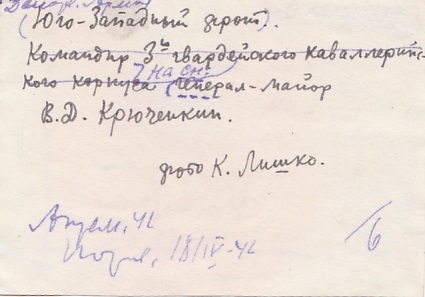 (Юго-Западный фронт).
Командир 3й гвардейского каваллерийс-
кого корпуса (генерал-майор
на сн.
В.Д. Крюченкин.
фото К. Лишко.
18/IV-42
6